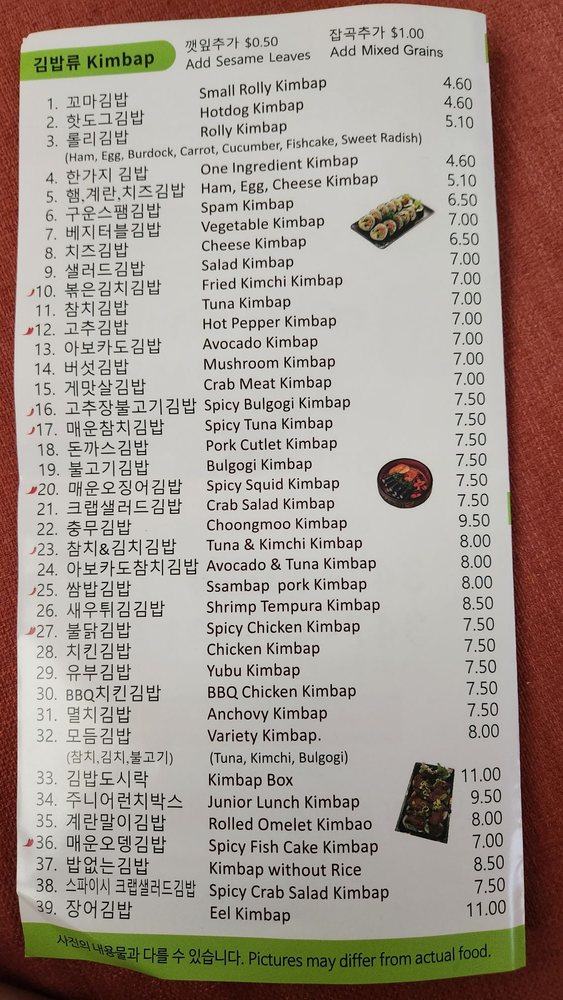 김밥류 Kimbap
깻잎추가 $0.50
Add Sesame Leaves
잡곡추가 $1.00
Add Mixed Grains
1. 꼬마김밥 Small Rolly Kimbap 4.60
2. 핫도그김밥 Hotdog Kimbap 4.60
3. 롤리김밥 Rolly Kimbap 5.10
(Ham, Egg, Burdock, Carrot, Cucumber, Fishcake, Sweet Radish)
4. 한가지 김밥 One Ingredient Kimbap 4.60
5. 햄,계란,치즈김밥 Ham, Egg, Cheese Kimbap 5.10
6. 구운스팸김밥 Spam Kimbap 6.50
7. 베지터블김밥 Vegetable Kimbap 7.00
8. 치즈김밥 Cheese Kimbap 6.50
9. 샐러드김밥 Salad Kimbap 7.00
10. 볶은김치김밥 Fried Kimchi Kimbap 7.00
11. 참치김밥 Tuna Kimbap 7.00
12. 고추김밥 Hot Pepper Kimbap 7.00
13. 아보카도김밥 Avocado Kimbap 7.00
14. 버섯김밥 Mushroom Kimbap 7.00
15. 게맛살김밥 Crab Meat Kimbap 7.00
16. 고추장불고기김밥 Spicy Bulgogi Kimbap 7.50
17. 매운참치김밥 Spicy Tuna Kimbap 7.50
18. 돈까스김밥 Pork Cutlet Kimbap 7.50
19. 불고기김밥 Bulgogi Kimbap 7.50
20. 매운오징어김밥 Spicy Squid Kimbap 7.50
21. 크랩샐러드김밥 Crab Salad Kimbap 7.50
22. 충무김밥 Choongmoo Kimbap 9.50
23. 참치&김치김밥 Tuna & Kimchi Kimbap 8.00
24. 아보카도참치김밥 Avocado & Tuna Kimbap 8.00
25. 쌈밥김밥 Ssambap pork Kimbap 8.00
26. 새우튀김김밥 Shrimp Tempura Kimbap 8.50
27. 불닭김밥 Spicy Chicken Kimbap 7.50
28. 치킨김밥 Chicken Kimbap 7.50
29. 유부김밥 Yubu Kimbap 7.50
30. BBQ치킨김밥 BBQ Chicken Kimbap 7.50
31. 멸치김밥 Anchovy Kimbap 7.50
32. 모듬김밥 Variety Kimbap. 8.00
(참치,김치,불고기) (Tuna, Kimchi, Bulgogi)
33. 김밥도시락 Kimbap Box 11.00
34. 주니어런치박스 Junior Lunch Kimbap 9.50
35. 계란말이김밥 Rolled Omelet Kimbao 8.00
36. 매운오뎅김밥 Spicy Fish Cake Kimbap 7.00
37. 밥없는김밥 Kimbap without Rice 8.50
38. 스파이시 크랩샐러드김밥 Spicy Crab Salad Kimbap 7.50
39. 장어김밥 Eel Kimbap 11.00
사진의 내용물과 다를 수 있습니다. Pictures may differ from actual food.